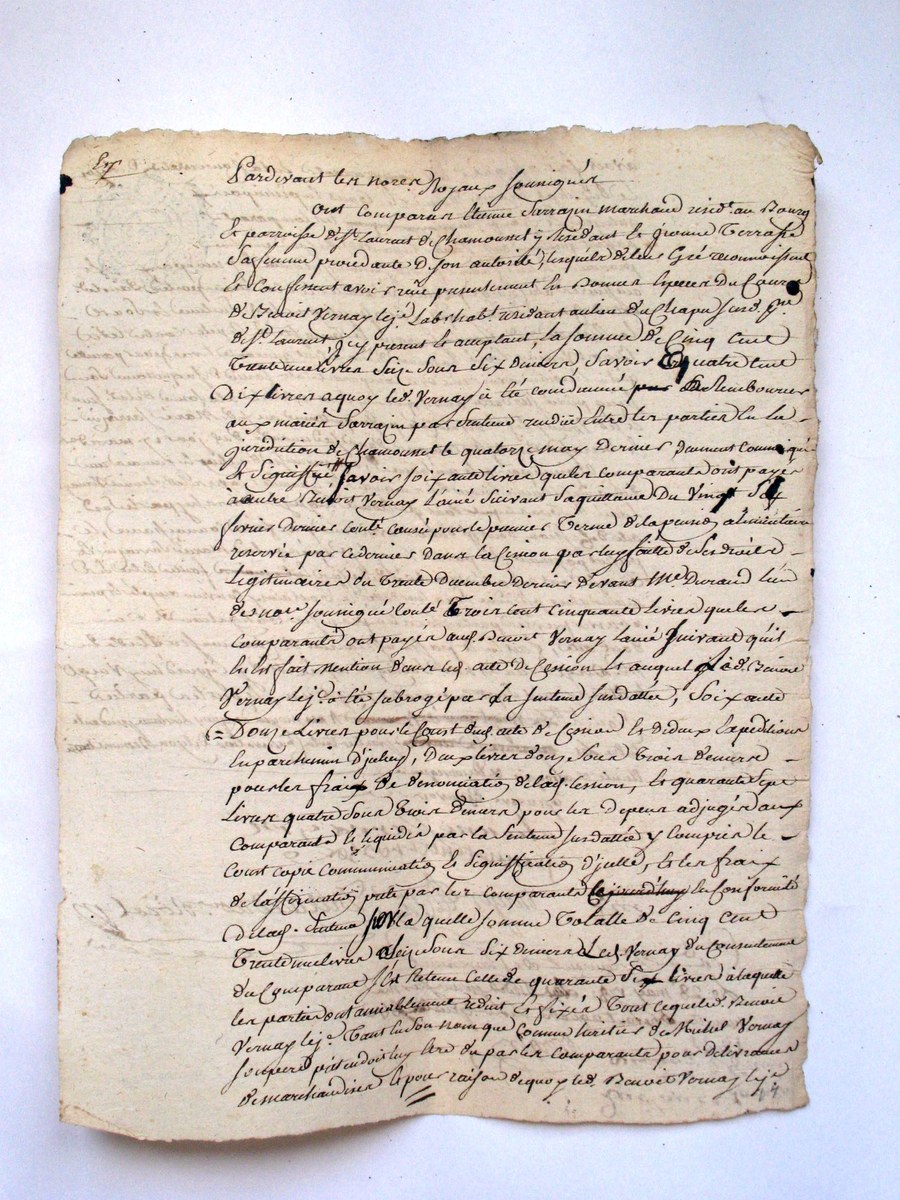 Pardevant les no.res Royaux soussignés
ont comparus Etienne Sarrazin marchand resid.t au Bourg
et parroisse de S.t Laurent de Chamousset y residant et Terrasse
sa femme procedante de son autorité, lesquels de leur Gré reconnoissent
et Confessent avoir reçu presentement en Bonnes Especes du Cours
de Benoit Vernay le j.e Lab. habt. residant au lieu du Chapu susd.
de S.t Laurent icy present et acceptant, la somme de Cinq cent
Trente une livres Seize Sous Six deniers Savoir quatre cent
Dix livres a quoy led. Vernay à été condamné de Rembourcer
aux mariés Sarrazin par Sentence renduë Entre les parties En la
juridiction de Chamousset le quatorze may dernier duement
et Signiffié, Savoir soixante livres que les comparants ont payés
à autre Benoit Vernay L'ainé Suivant sa quittance Du vingt Six
fevrier dernier causée pour le premier Terme de la pension alimentaire
reservée par ce dernier dans la Cession par luy faitte de Ses droits
Legitimaires du Trente Decembre dernier devant M.e Durand l'un
des no.res soussigné Trois cent Cinquante Livres que les
comparants ont payés aud. Benoit Vernay L'ainé Suivant qu'il
En Est fait mention dans led. acte de Cession Et auquel led. Benoit
Vernay le j.e à été subrogé par La Sentence susdattée, Soixante
Douze Livres pour le Court dud. acte de Cession et de deux Expeditions
En parchemin d'iceluy, Deux livres douze Sous Trois deniers
pour les fraix de denonciation de lad. Cession, Et quarante Sept
Livres quatre Sous Trois deniers pour les depens adjugés aux
comparants et liquidés par la Sentence susdattée y Compris le
Cout copie communication et Signiffication d'icelle, et les fraix
de l'affirmation prete par les comparants En Conformité
De lad. Sentence Sur la quelle somme Totalle de Cinq Cent
Trente une livres Seize Sous Six deniers Led. Vernay du Consentement
du Comparant s'Est Retenu Celle de quarante Six livres à laquelle
les parties ont amiablement reduit Et fixés Tout ce que led. Benoit
Vernay le j.e Tant En Son nom que Comme heritier de Michel Vernay
son pere pretendoit luy Etre du par les comparants pour delivrances
de marchandises Et pour raison de quoy led. Benoit Vernay le j.e